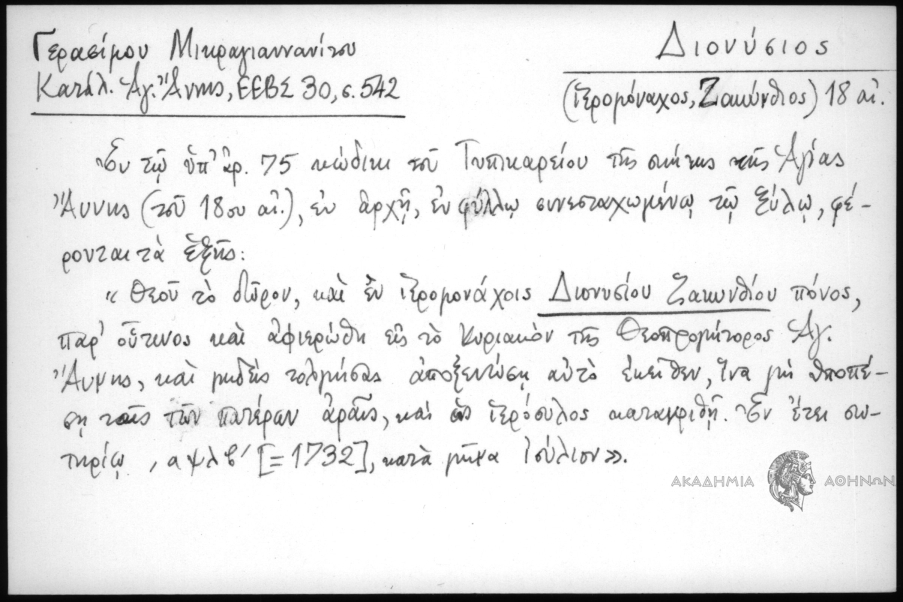 Γερασίμου Μικραγιαννανίτου
Κατάλ. Ἁγ. Ἄννης, ΕΕΒΣ 30, σ. 542
Διονύσιος
(ἱερομόναχος, Ζακύνθιος) 18 αἰ.
Ἐν τῷ ὑπ' ἀρ. 75 κώδικι τοῦ Τυπικαρείου τῆς σκήτης τῆς Ἁγίας
Ἄννης (τοῦ 18ου αἰ.), ἐν ἀρχῇ, ἐν φύλλῳ συνεσταχωμένῳ τῷ ξύλῳ, φέ-
ρονται τὰ ἑξῆς:
« Θεοῦ τὸ δῶρον, καὶ ἐν ἱερομονάχοις Διονυσίου Ζακυνθίου πόνος,
παρ' οὗτινος καὶ ἀφιερώθη εἰς τὸ Κυριακὸν τῆς Θεοπρομήτορος Ἁγ.
Ἄννης, καὶ μηδεὶς τολμήσας ἀποξενώσῃ αὐτὸ ἐκεῖθεν, ἵνα μὴ ὑποπέ-
σῃ ταῖς τῶν πατέρων ἀραῖς, καὶ ὡς ἱερόσυλος κατακριθῇ. Ἐν ἔτει σω-
τηρίῳ ͵αψλβ' [= 1732], κατὰ μῆνα Ἰούλιον».
ΑΚΑΔΗΜΙΑ ΑΘΗΝΩΝ